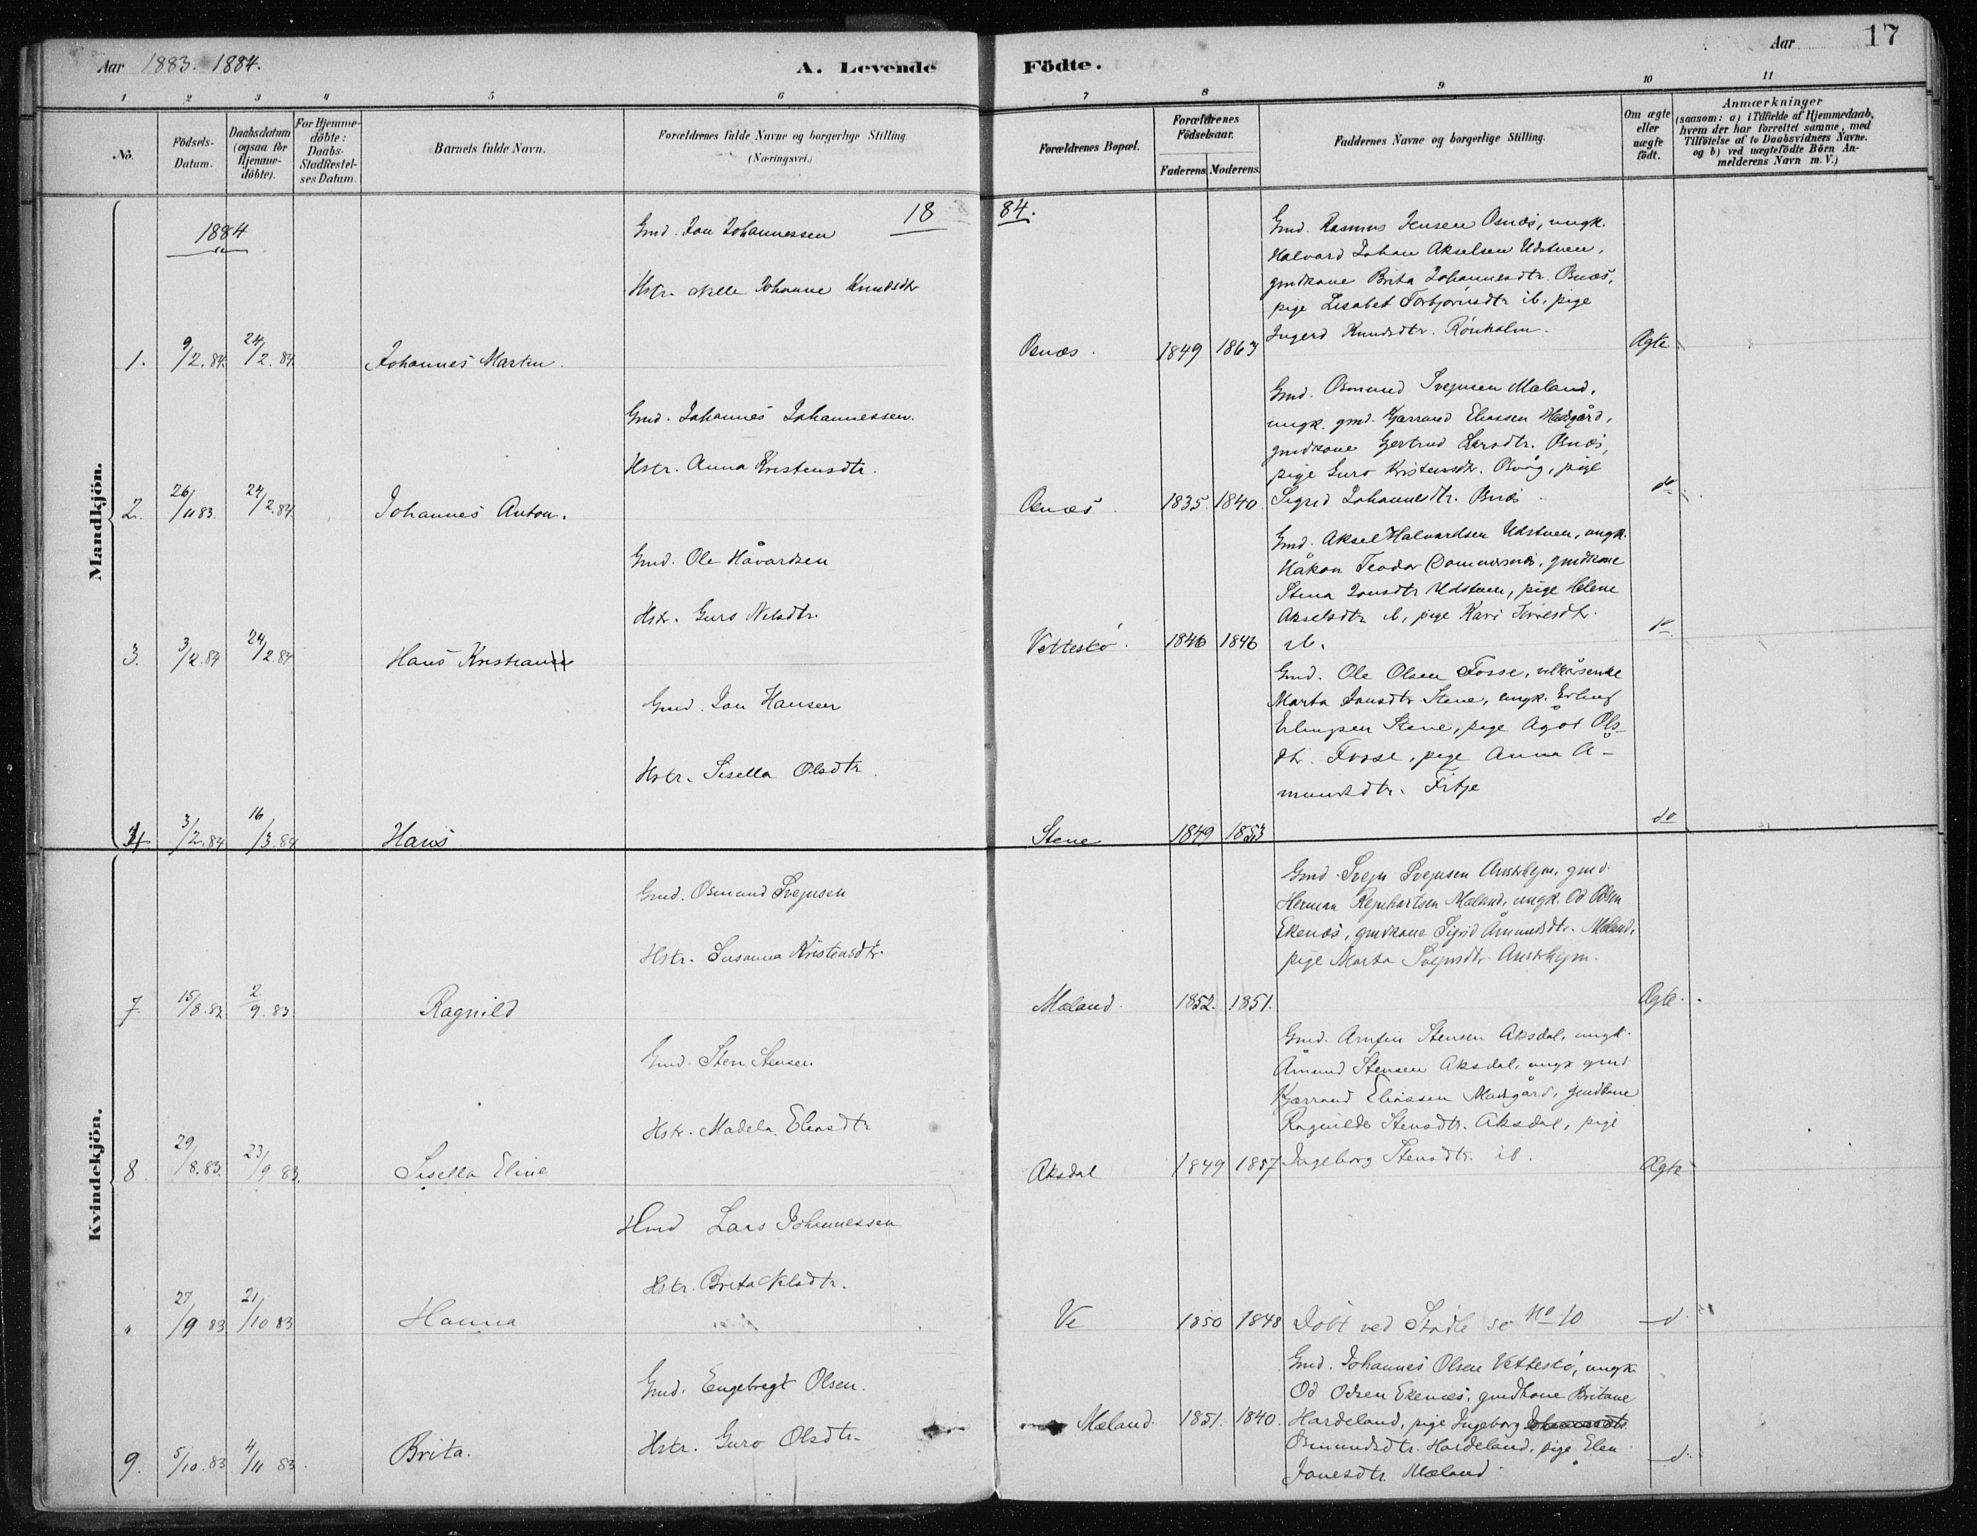 Aar 1883. 1884.
A. Levende Födte.
Aar 17
1 2 3 4 5 6 7 8 9 10 11
No.
Födsels-Datum.
Daabsdatum (ogsaa for Hjemmedöbte).
For Hjemmedöbte: Daabs-Stadfæstelses Datum.
Barnets fulde Navn.
Forældrenes fulde Navne og borgerlige Stilling. (Næringsvei.)
Forældrenes Bopæl.
Forældrenes Födselsaar.
Faderens. Moderens.
Faddernes Navne og borgerlige Stilling.
Om ægte eller uægte födt.
Anmærkninger
(saasom: a) i Tilfælde af Hjemmedaab,
hvem der har forrettet samme, med
Tilföielse af to Daabsvidners Navne.
og b) ved uægtefödte Börn Anmelderens Navn m. V.)
Mandkjön.
1884
18 84.
Gmd. Jon Johannessen
Hstr. Johanne Knudsdtr
Gmd. Rasmus Jensen Osnæs, ungk.
Halvard Johan Akselsen Udstuen,
gmdkone Brita Johannesdtr. Osnæs,
pige Lisabet Torbjørnsdtr ib, pige
Ingerd Knudsdtr. Rönholm.
1. 9/2.84. 24/2.84. Johannes Martin. Osnæs. 1849 1863 Ægte
Gmd. Johannes Johannessen.
Hstr. Anna Kristensdtr.
Gmd. Osmund Svejnsen Mæland,
ungk. gmd. Kjærrand Eliassen
gmdkone Gertrud Larsdtr. Osnæs,
pige Guro Kristensdtr. Osvåg, pige
Sigrid Johannesdtr. Osnæs
2. 26/11 83. 24/2.84. Johannes Anton. Osnæs. 1835 1840 do
Gmd. Ole Håvardsen
Hstr. Guro Nilsdtr.
Gmd. Aksel Halvardsen Udstuen, ungk.
Håkon Teodor gmdkone
Stena Jonsdtr Udstuen, pige Helene
Akselsdtr ib, pige Kari
ib.
3. 3/2.84 24/2.84 Hans Kristian Vetteskö. 1846 1846 do
Gmd. Jon Hansen
Hstr. Sisella Olsdtr.
Gmd. Ole Olsen Fosse,
Marta Jonsdtr Stene, ungk. Erling
Erlingsen Stene, pige Agot Ols-
dtr. Fosse, pige Anna Å-
mundsdtr. Fitje
4. 3/2.84 16/3.84 Hans Stene 1849 1853 do
Kvindekjön.
Gmd. Osmund Svejnsen
Hstr. Susanna Kristensdtr.
Gmd. Svejn Svejnsen gmd.
Herman Rejnhartsen Mæland, ungk. Od Odsen
Ekenæs, gmdkone Sigrid Åmundsdtr. Mæland,
pige Marta Svejnsdtr.
7 15/8.83 2/9.83 Ragnild Mæland. 1852. 1851. Ægte.
Gmd. Sten Stensen
Hstr. Madela Eliasdtr
Gmd. Arnfin Stensen Aksdal, ungk.
Åmund Stensen Aksdal, ungk gmd
Kjærrand Eliassen gmdkone
Ragnilde Stensdtr. Aksdal, pige
Ingeborg Stensdtr. ib.
8. 29/8.83. 23/9 83. Sisella Eline Aksdal 1849 1857 Ægte
Hmd Lars Johannessen
Hstr. Brita Nilsdtr.
" 27/9 83 21/10 83 Hanna Ve 1850 1848 Döbt ved Stödle se No 10 d
Gmd. Engebregt Olsen.
Hstr. Guro Olsdtr.
Gmd. Johannes Olsen Vetteskö, ungk.
Od Odsen Ekenæs, gmdkone Britane
Hardeland, pige Ingeborg
Osmundsdtr. Hardeland, pige Elen
Jonesdtr Mæland
9. 5/10.83 4/11 83. Brita. Mæland. 1851. 1840. d